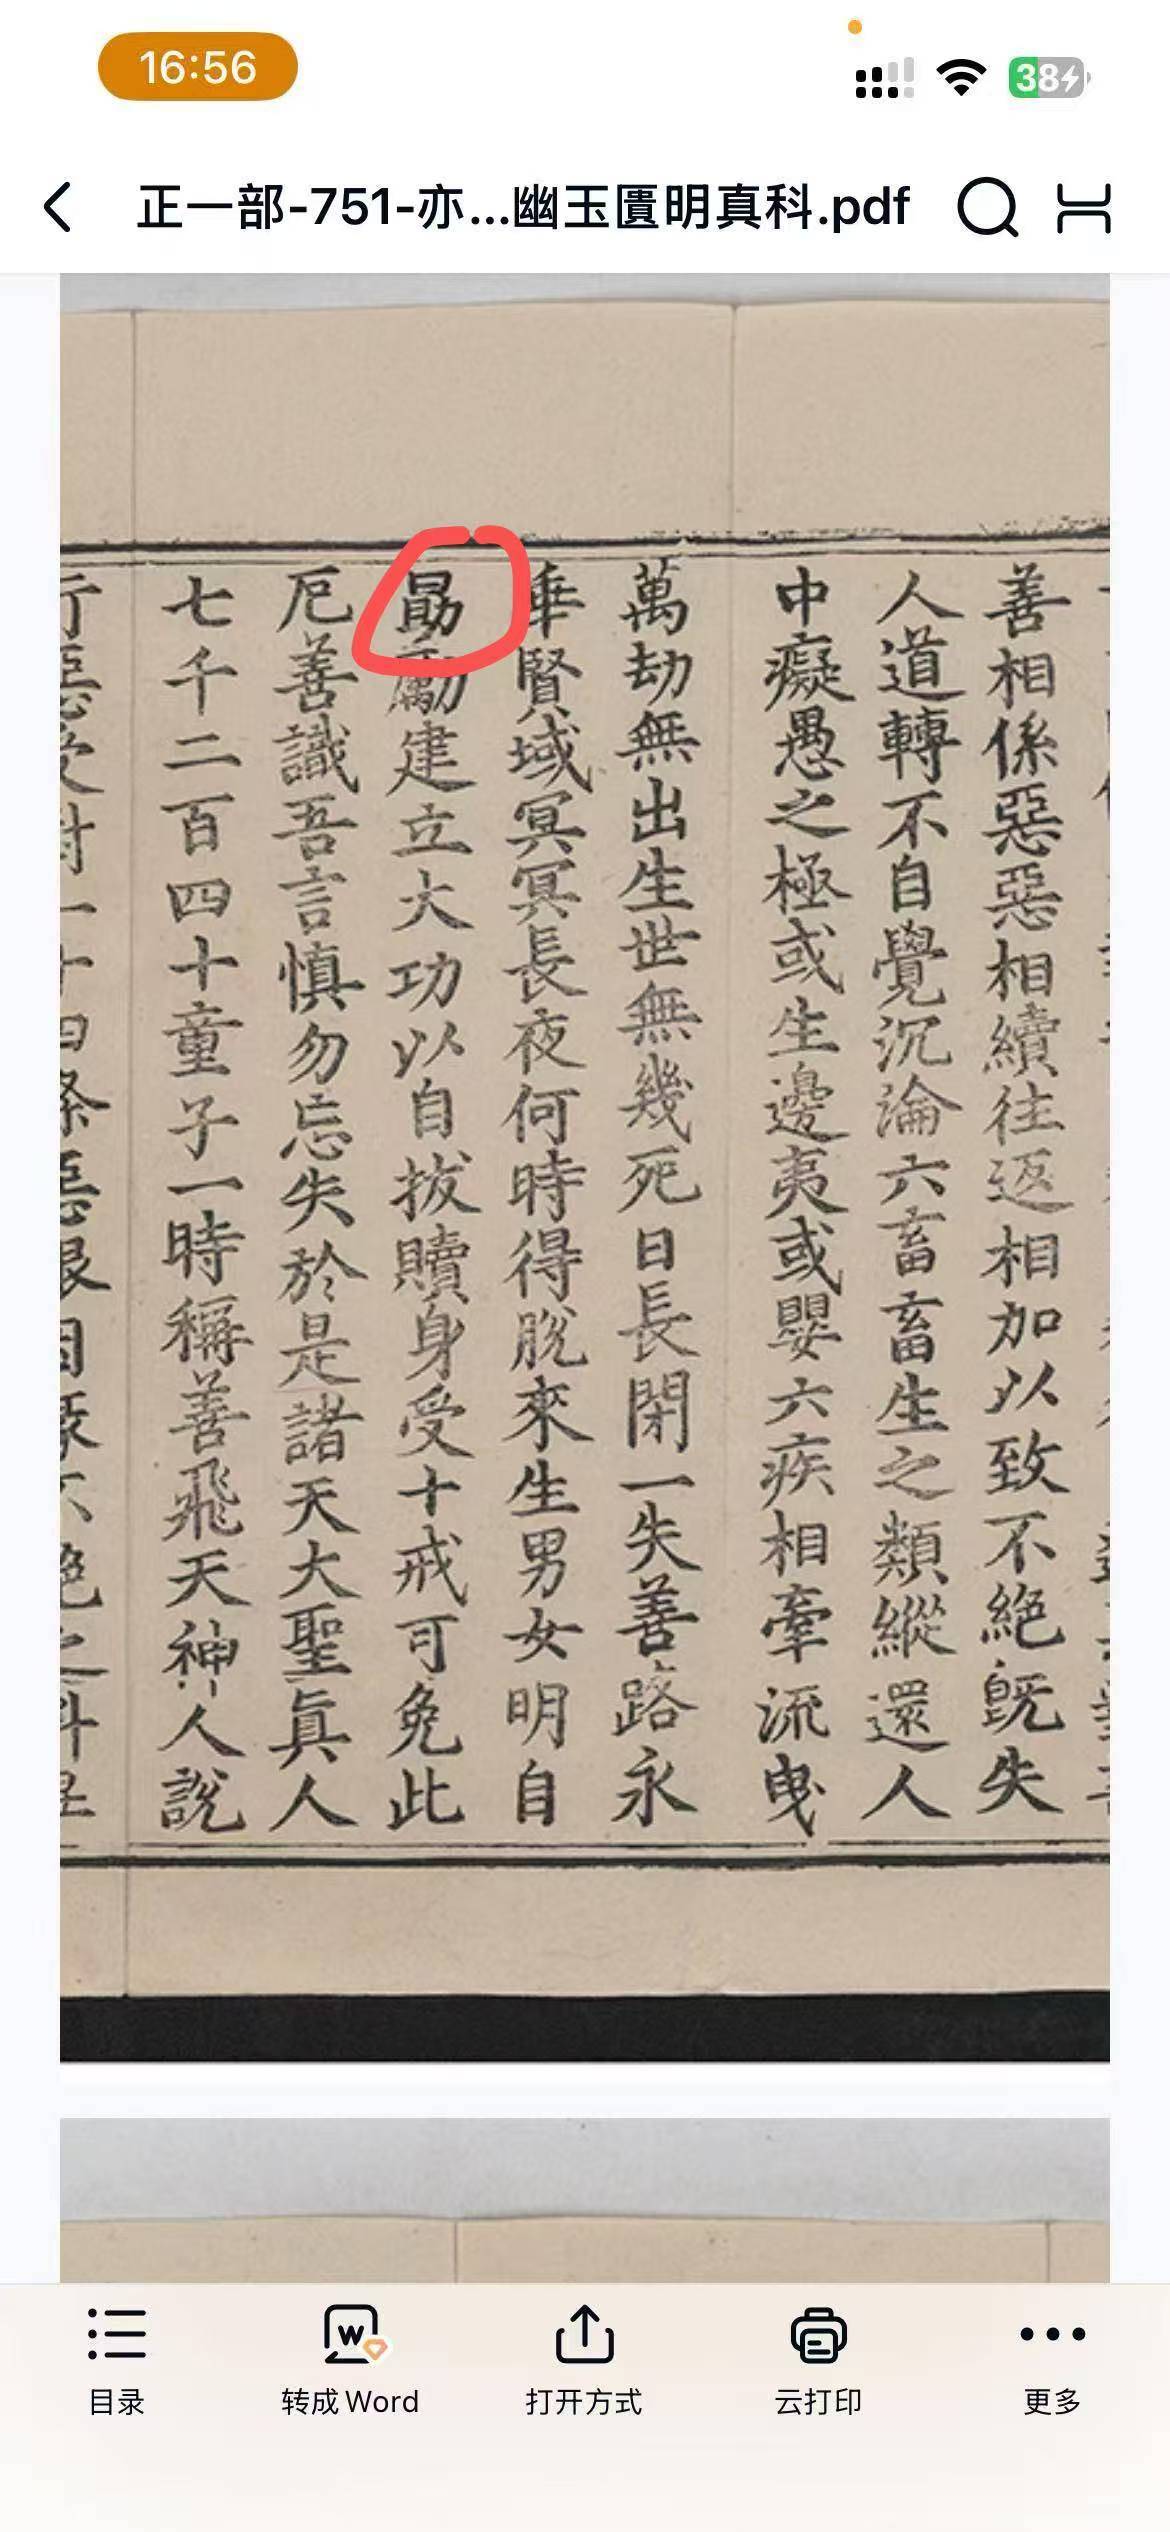 16:56
38
正一部-751-亦...幽玉匱明真科.pdf
善相係惡惡相續往返相加以致不絶既失
人道轉不自覺沉淪六畜畜生之類縱還人
中癡愚之極或生邊夷或嬰六疾相牽流曳
萬劫無出生世無幾死日長閉一失善路永
乖賢域冥冥長夜何時得脫來生男女明自
勗勵建立大功以自拔贖身受十戒可免此
厄善識吾言慎勿忘失於是諸天大聖真人
七千二百四十童子一時稱善飛天神人說
目录
转成Word
打开方式
云打印
更多